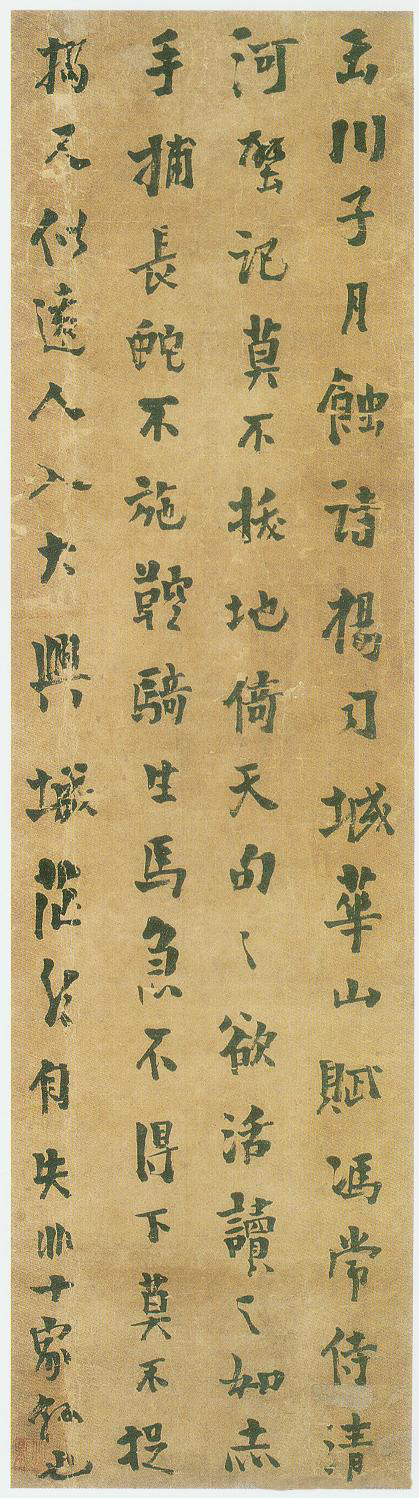 玉川子月蝕詩楊司城華山賦馮常侍清
河壁記莫不拔地倚天句〻欲活讀之如赤
手捕長蛇不施鞚騎生馬急不得下莫不捉
搦又似遠人入大興城茫然自失